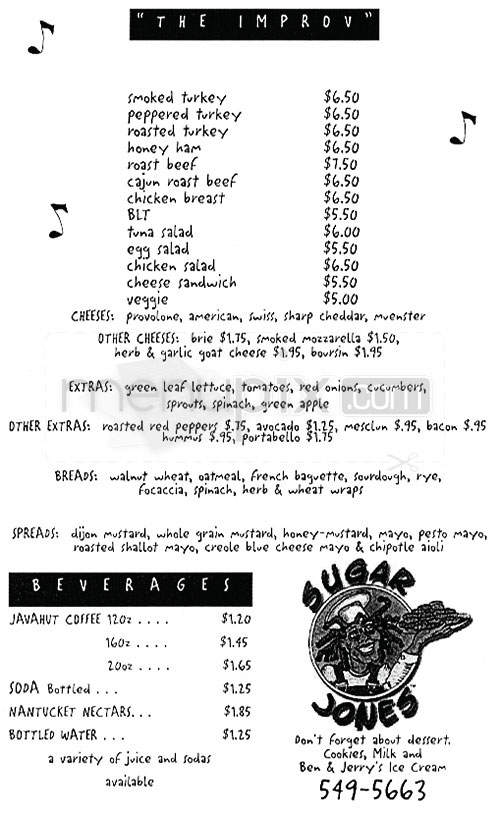 "THE IMPROV"
smoked turkey $6.50
peppered turkey $6.50
roasted turkey $6.50
honey ham $6.50
roast beef $7.50
cajun roast beef $6.50
chicken breast $6.50
BLT $5.50
tuna salad $6.00
egg salad $5.50
chicken salad $6.50
cheese sandwich $5.50
veggie $5.00
CHEESES: provolone, american, swiss, sharp cheddar, muenster
OTHER CHEESES: brie $1.75, smoked mozzarella $1.50,
herb & garlic goat cheese $1.95, boursin $1.95
EXTRAS: green leaf lettuce, tomatoes, red onions, cucumbers,
sprouts, spinach, green apple
OTHER EXTRAS: roasted red peppers $.75, avocado $1.25, mesclun $.95, bacon $.95
hummus $.95, portabello $1.75
BREADS: walnut wheat, oatmeal, french baguette, sourdough, rye,
focaccia, spinach, herb & wheat wraps
SPREADS: dijon mustard, whole grain mustard, honey-mustard, mayo, pesto mayo,
roasted shallot mayo, creole blue cheese mayo & chipotle aioli
BEVERAGES
JAVAHUT COFFEE 12oz . . . . $1.20
16oz . . . . $1.45
20oz . . . . $1.65
SODA Bottled . . . $1.25
NANTUCKET NECTARS. . . $1.85
BOTTLED WATER . . . $1.25
a variety of juice and sodas
available
SUGAR
JONES
Don't forget about dessert.
Cookies, Milk and
Ben & Jerry's Ice Cream
549-5663